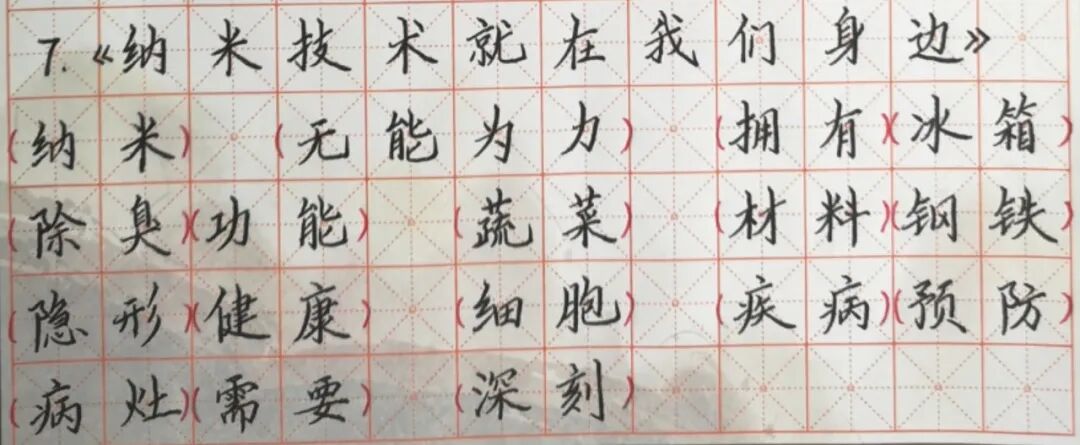 7.《纳米技术就在我们身边》
(纳米) (无能为力) (拥有)(冰箱)
(除臭)(功能) (蔬菜) (材料)(钢铁)
(隐形)(健康) (细胞) (疾病)(预防)
(病灶)(需要) (深刻)